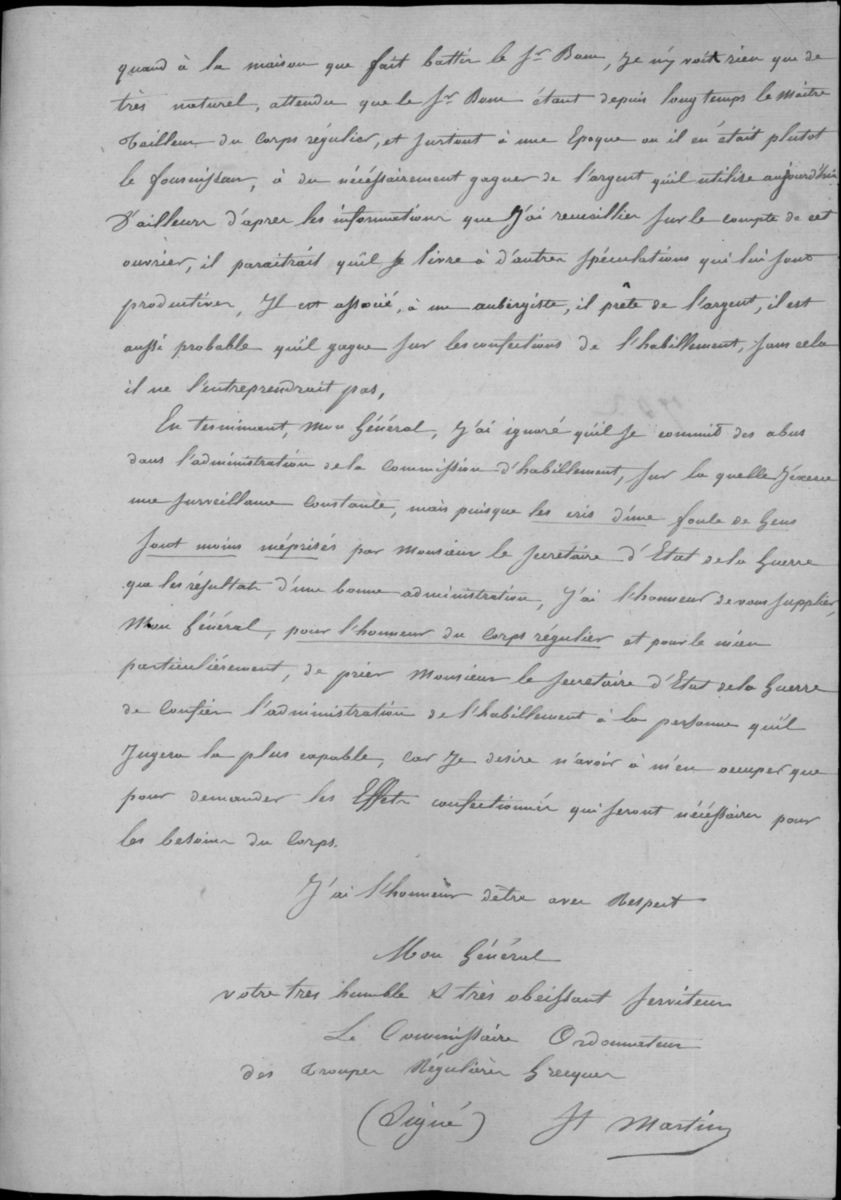 quand à la maison que fait battir le Sr. Bom, Je n'y voit rien que de
très naturel, attendu que le Sr. Bom étant depuis longtemps le Maitre
Tailleur du Corps régulier, et surtout à une Epoque ou il en était plutot
le fournisseur, à du nécéssairement gagner de l'argent qu'il utilise aujourd'hui
D'ailleurs d'apres les informations que J'ai recueillies sur le compte de cet
ouvrier, il paraitrait qu'il se livre à d'autres spéculations qui lui sont
productives, Il est associé, à un aubergiste, il prête de l'argent, il est
aussi probable qu'il gagne sur les confections de l'habillement, sans cela
il ne l'entreprendrait pas,
En terminant, Mon Général, J'ai ignoré qu'il se commit des abus
dans l'administration de la Commission d'habillement, sur la quelle J'éxerce
une surveillance constante, mais puisque les cris d'une foule de Gens
sont moins méprisés par Monsieur le Secretaire d'Etat de la Guerre
que les résultats d'une bonne administration, J'ai l'honneur de vous supplier,
Mon Général, pour l'honneur du Corps régulier et pour le mien
particuliérement, de prier Monsieur le Secretaire d'Etat de la Guerre
de Confier l'administration de l'habillement à la personne qu'il
Jugera la plus capable, car Je desire n'avoir à m'en occuper que
pour demander les Effets confectionnés qui seront nécéssaires pour
les besoins du Corps.
J'ai l'honneur d'être avec Respect
Mon Général
votre très humble & très obeissant serviteur
Le Commissaire Ordonnateur
des Troupes Régulières Grecques
(Signé) St Martin